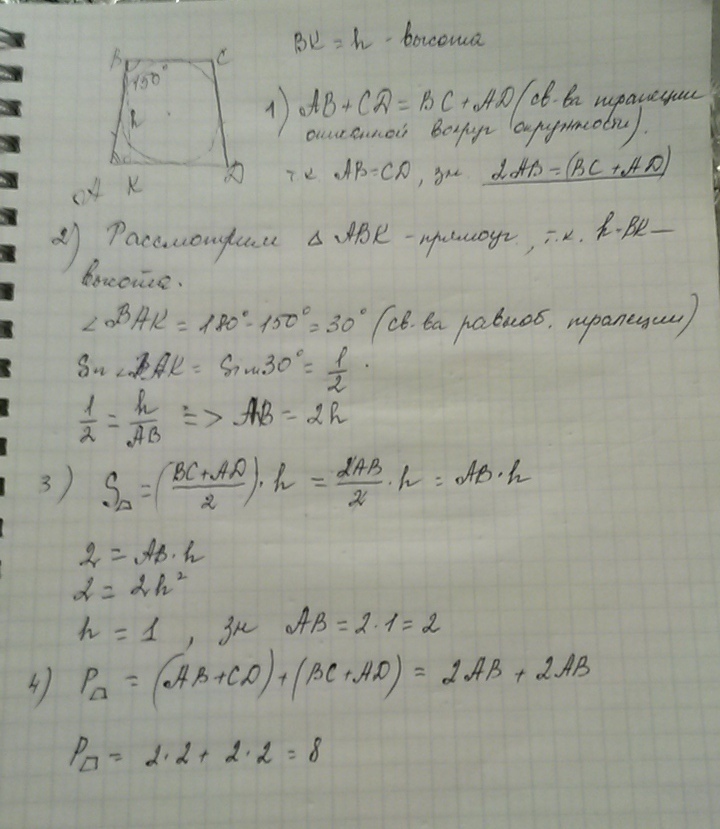 BK = h - высота
B C
150°
h
A K D
1) AB + CD = BC + AD (св-ва трапеции
описанной вокруг окружности).
т.к. AB = CD, зн. 2AB = (BC + AD)
2) Рассмотрим △ ABK - прямоуг, т.к. h - BK —
высота.
∠BAK = 180° - 150° = 30° (св-ва равноб. трапеции)
Sin ∠BAK = Sin 30° = 1/2.
1/2 = h/AB => AB = 2h
3) S = ((BC + AD)/2) · h = 2AB/2 · h = AB · h
2 = AB · h
2 = 2h²
h = 1, зн AB = 2·1 = 2
4) P = (AB + CD) + (BC + AD) = 2AB + 2AB
P = 2·2 + 2·2 = 8